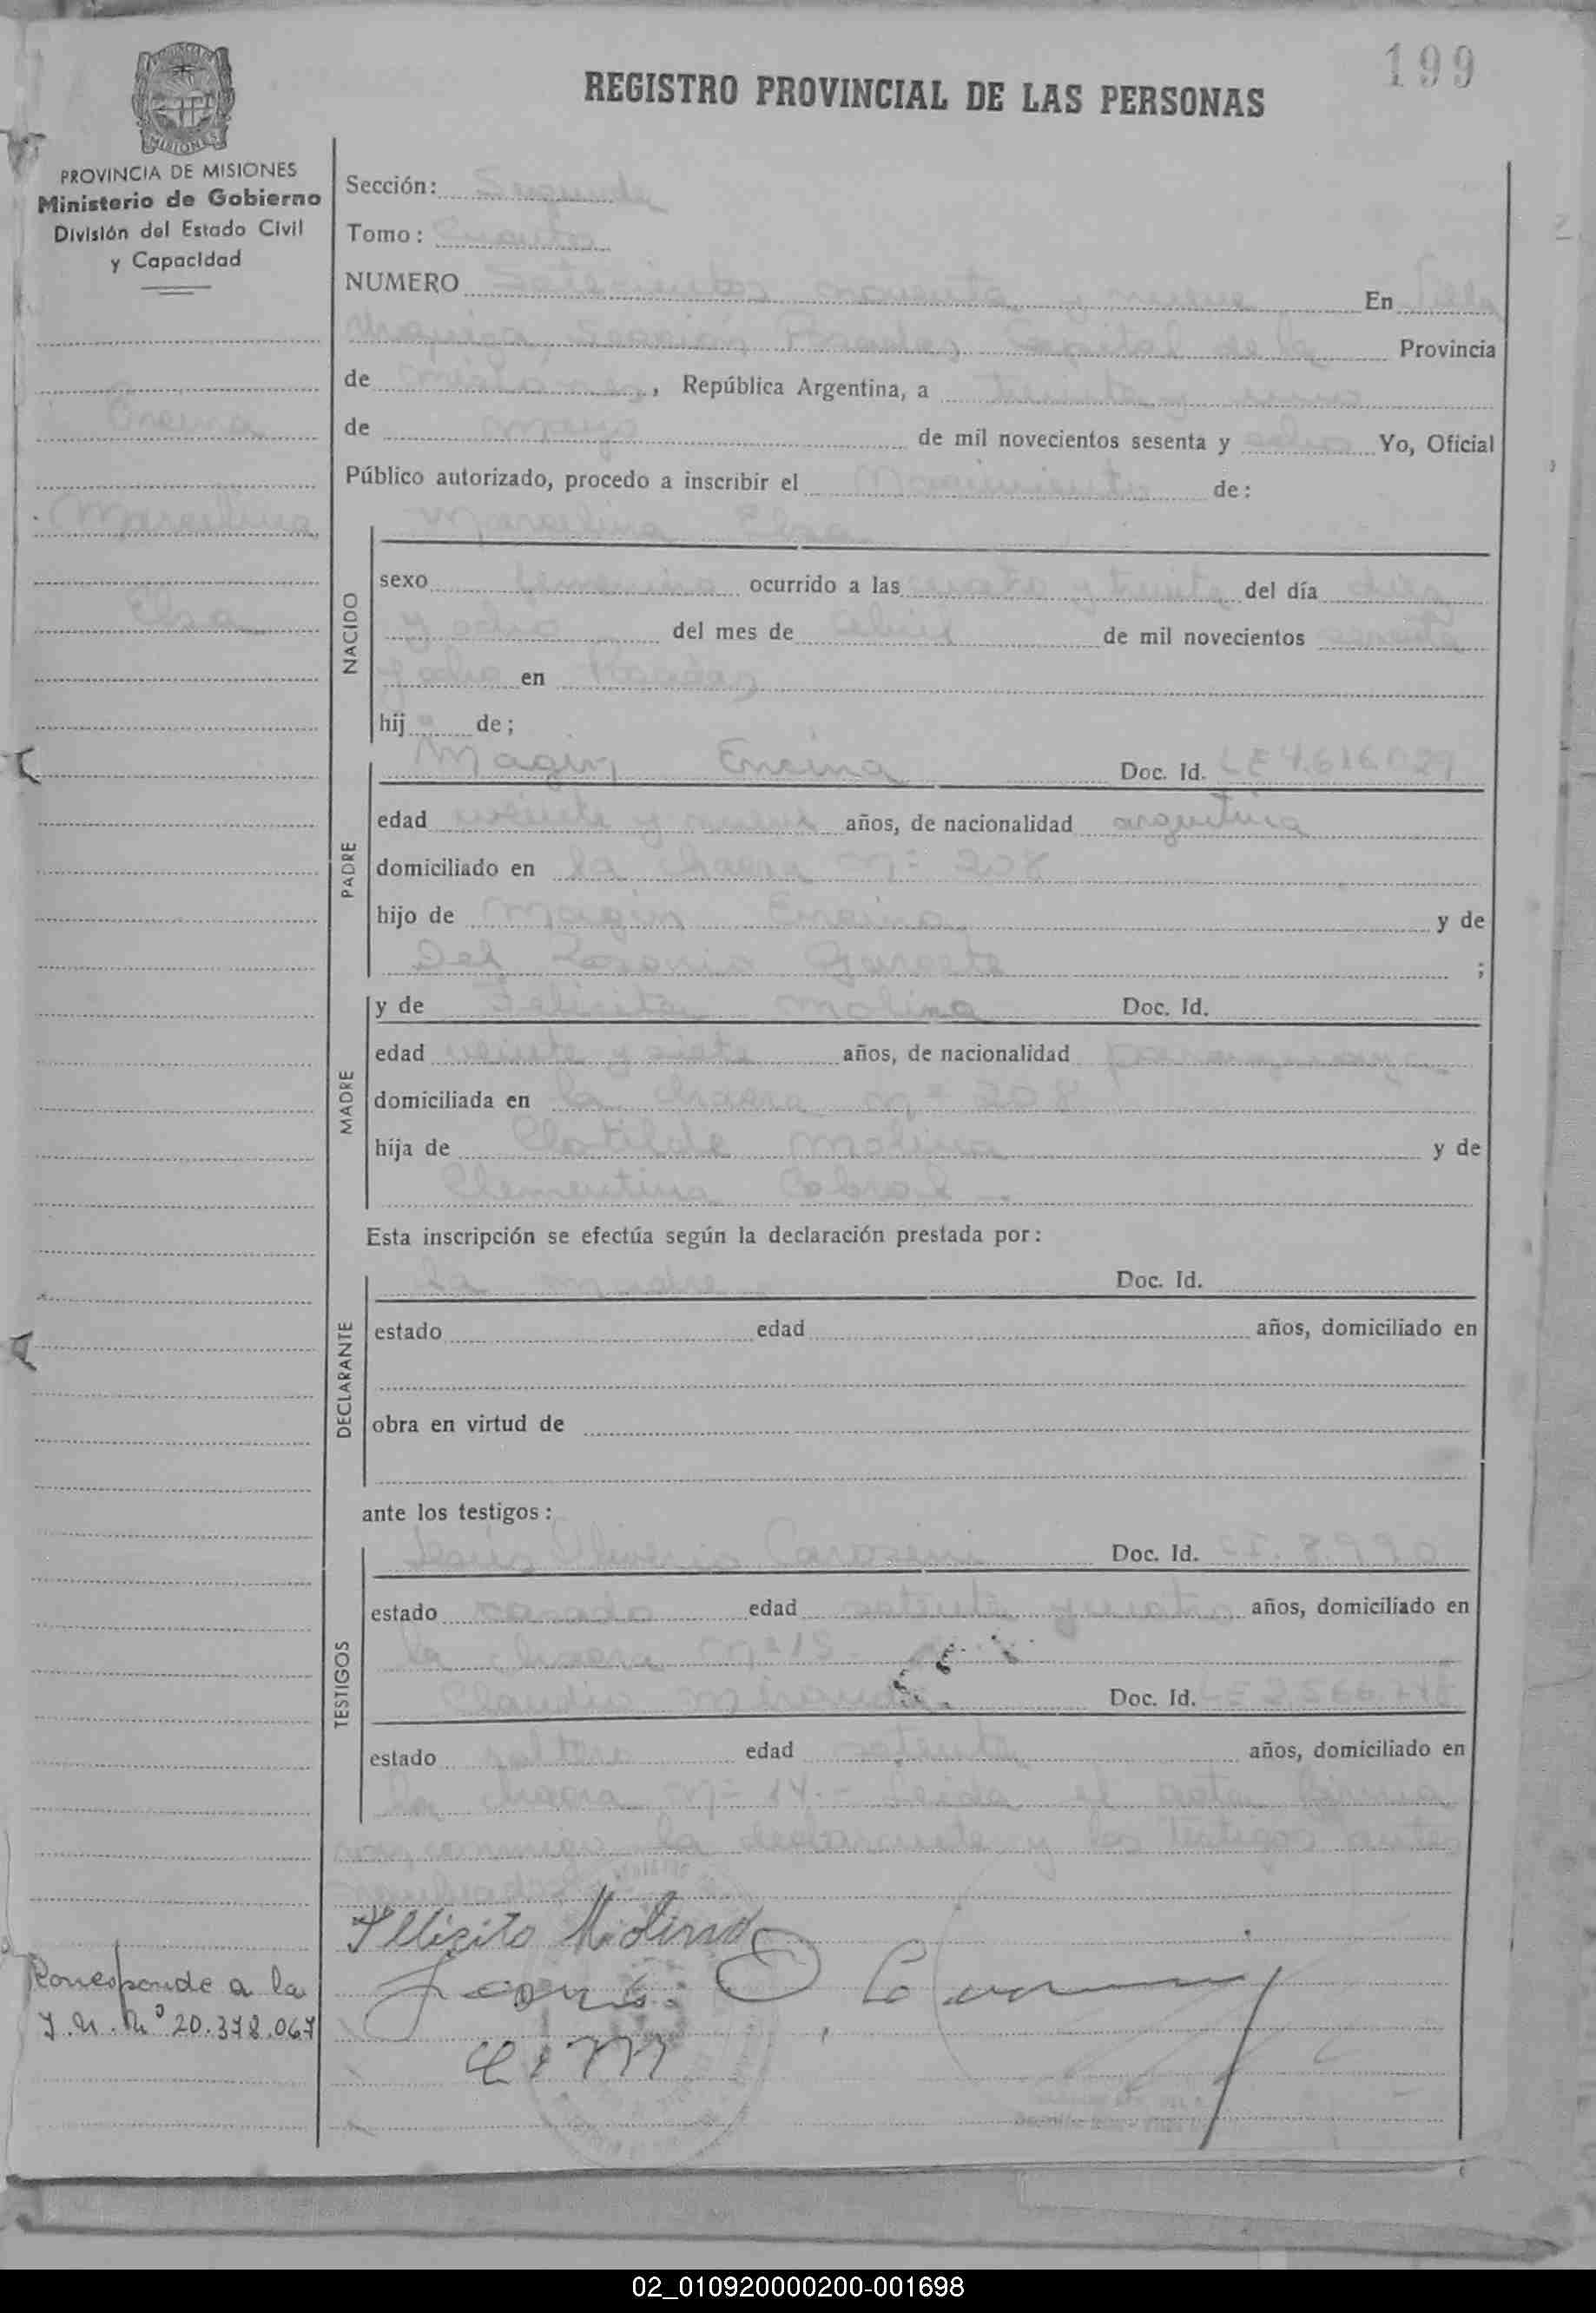 199
REGISTRO PROVINCIAL DE LAS PERSONAS
PROVINCIA DE MISIONES
Ministerio de Gobierno
División del Estado Civil
y Capacidad
Encina
Marcelina
Elsa
Corresponde a la
20.378.067
Sección: Segunda
Tomo: Cuarto
NUMERO Setecientos noventa y nueve En Villa
Urquiza, Sección Posadas, Capital de la Provincia
de Misiones, República Argentina, a Treinta y uno
de Mayo de mil novecientos sesenta y ocho Yo, Oficial
Público autorizado, procedo a inscribir el Nacimiento de:
Marcelina Elsa
NACIDO
sexo femenino ocurrido a las cuatro y treinta del día diez
y ocho del mes de Abril de mil novecientos sesenta
y ocho en Posadas
hija de;
PADRE
Magin Encina Doc. Id. LE 7.616.029
edad veinte y nueve años, de nacionalidad argentina
domiciliado en la chacra Nº 208
hijo de Magin Encina y de
Del Rosario ;
MADRE
y de Felicita Molina Doc. Id.
edad veinte y siete años, de nacionalidad paraguaya
domiciliada en la chacra nº 208
hija de Clotilde Molina y de
Clementina Cabral
Esta inscripción se efectúa según la declaración prestada por:
DECLARANTE
la madre Doc. Id.
estado edad años, domiciliado en
obra en virtud de
ante los testigos:
TESTIGOS
Doc. Id. CI. 8.990
estado casado edad setenta y cuatro años, domiciliado en
la chacra Nº 13.
Claudio Miranda Doc. Id. LE
estado soltero edad setenta años, domiciliado en
la chacra Nº 14.- Leida el acta firman
conmigo la declarante y los testigos antes
Felisita Molina
02_010920000200-001698